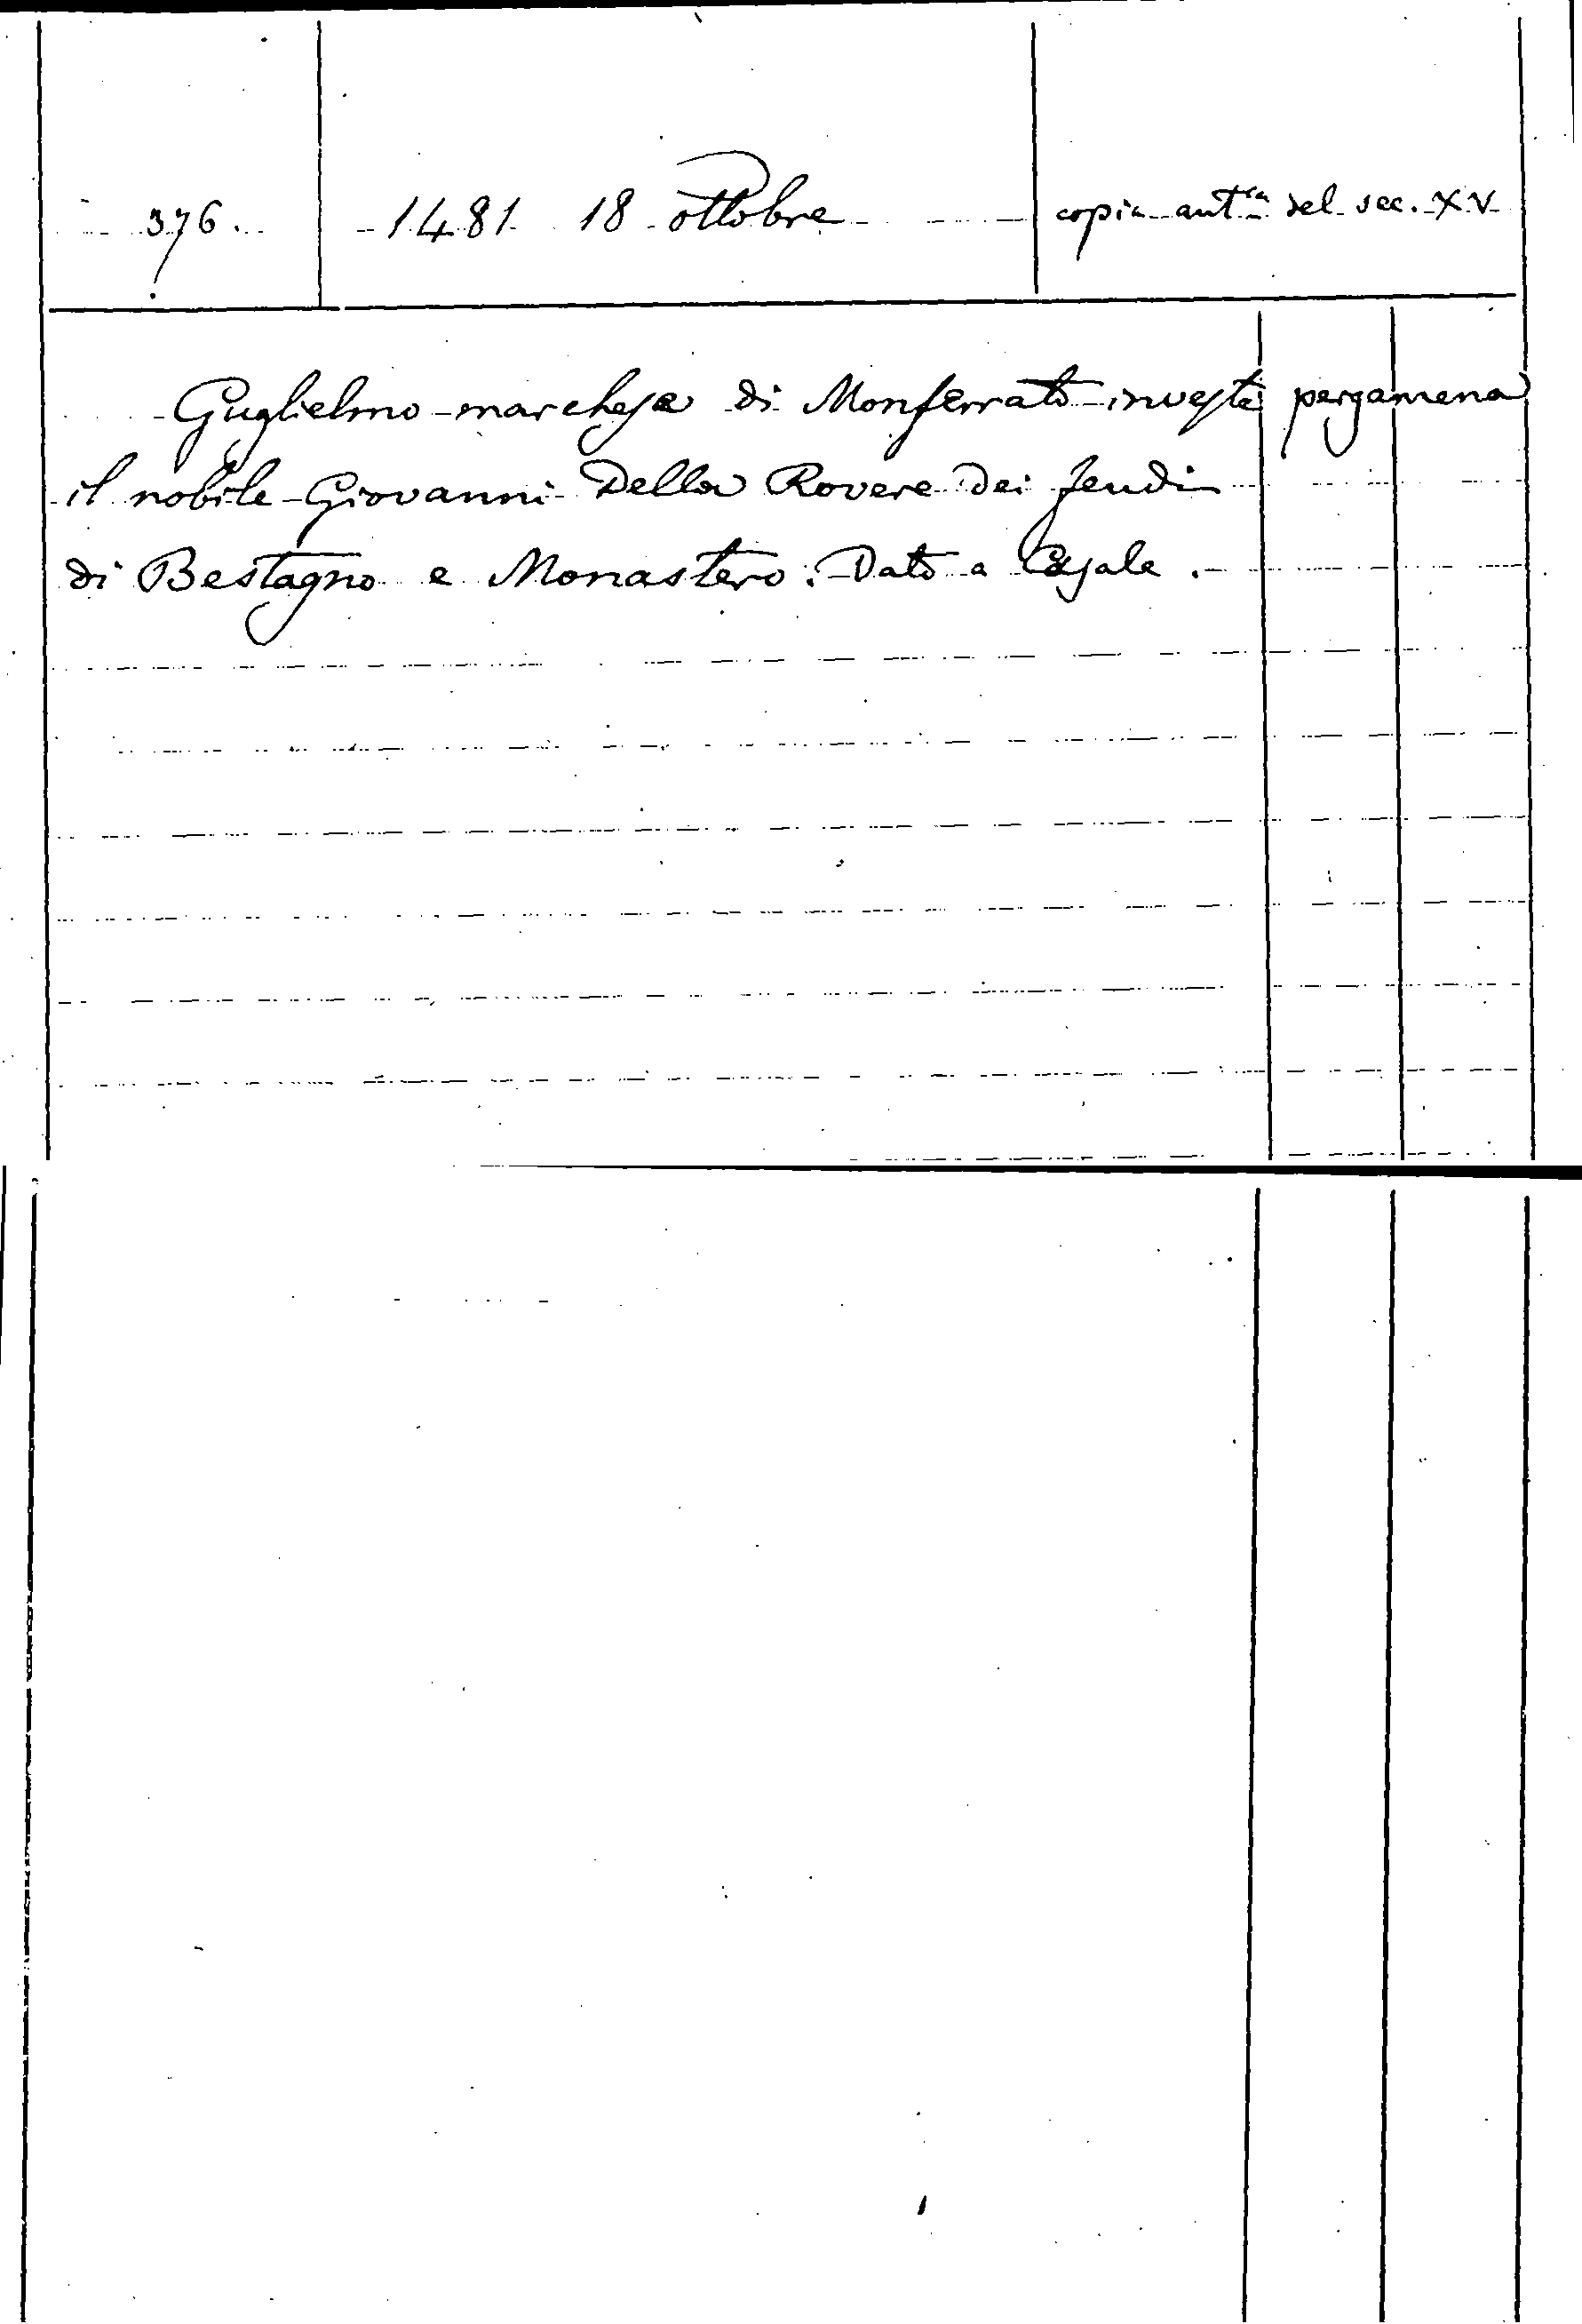 376.
1481 18 ottobre
copia aut.ca del sec. XV
Guglielmo marchese di Monferrato investe
pergamena
il nobile Giovanni Della Rovere dei feudi
di Bestagno e Monastero. Dato a Casale.